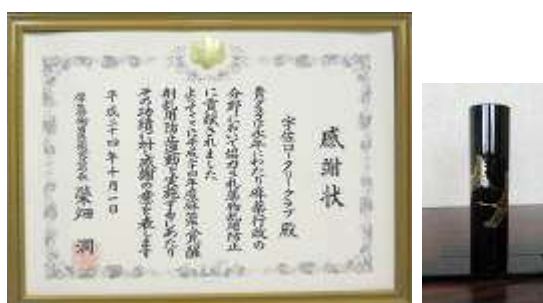 感謝状
宇佐ロータリークラブ殿
貴クラブは永年にわたり麻薬行政の
分野において協力され薬物乱用防止
に貢献されました
よってここに平成二十四年度麻薬・覚醒
剤乱用防止運動を実施するにあたり
その功績に対し感謝の意を表します
平成二十四年十月一日
榮畑 潤